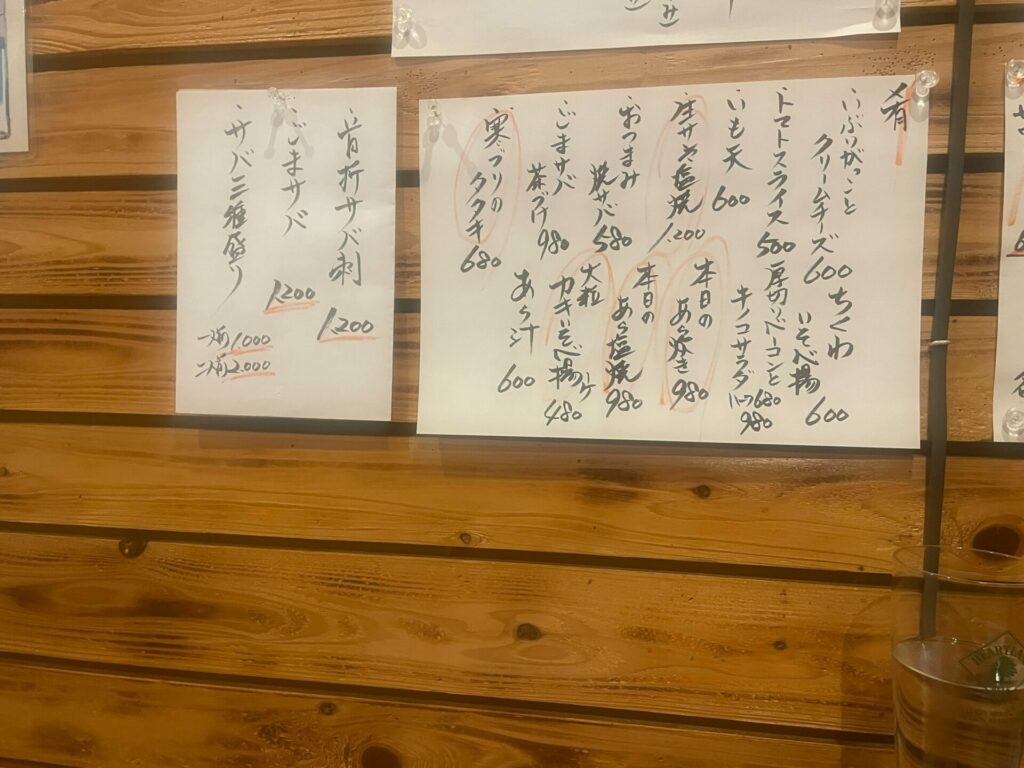 肴
いぶりがっこと
クリームチーズ 600
トマトスライス 500
いも天 600
生サバ塩焼 1,200
おつまみ
焼サバ 580
ごまサバ
茶づけ 980
寒ブリの
タタキ 680
ちくわ
いそべ揚 600
厚切りベーコンと
キノコサラダ ハーフ680
980
本日の
あら炊き 980
本日の
あら塩焼 980
大粒
カキいそべ揚 1ケ 480
あら汁 600
首折サバ刺 1,200
ごまサバ 1,200
サバ三種盛り
一人前 1,000
二人前 2,000
HEARTLAND